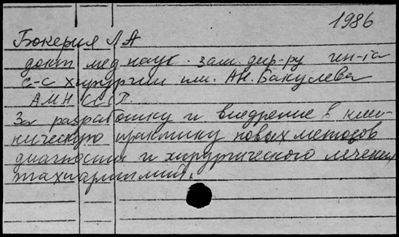 1986
Бокерия Л А
докт мед наук. зам. дир-ру ин-та
с-с хирургии им. АН. Бакулева
АМН СССР.
За разработку и внедрение в кли-
ническую практику новых методов
диагностики и хирургического лечения
тахиаритмий.